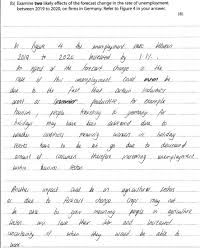 (b) Examine two likely effects of the forecast change in the rate of unemployment,
between 2019 to 2020, on firms in Germany. Refer to Figure 4 in your answer.
(8)
In figure 4 the unemployment rate between
2019 to 2020 increased by 1.1%.
An effect of the forecast change in the
rate of this unemployment could be
due to the fact that certain industries
productive for example
tourism people travelling to germany for
holidays may have been due to
countries meaning in holiday
there has to be let go due to decreased
amount of therefore increasing unemployment
within tourism sector.
Another impact could be on agricultural sector
as due to forecast change crops may not
be able to grow meaning people in agriculture
sector will lose their job and increase
uncertainty of when they would be able to
work.